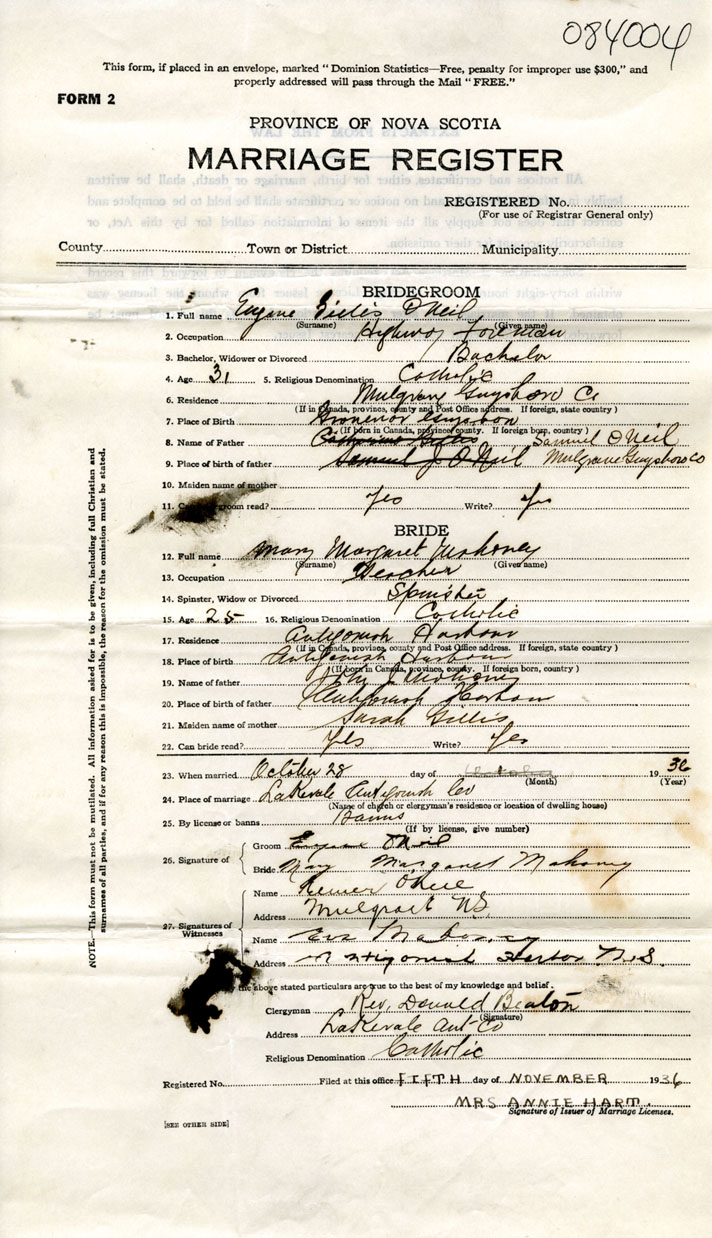 084004
This form, if placed in an envelope, marked "Dominion Statistics—Free, penalty for improper use $300," and
properly addressed will pass through the Mail "FREE."
FORM 2
PROVINCE OF NOVA SCOTIA
MARRIAGE REGISTER
REGISTERED No.
(For use of Registrar General only)
County Town or District Municipality
BRIDEGROOM
1. Full name Eugene Gillis O'Neil
(Surname) (Given name)
2. Occupation Highway Foreman
3. Bachelor, Widower or Divorced Bachelor
4. Age 31 5. Religious Denomination Catholic
6. Residence Mulgrave Guysboro Co
(If in Canada, province, county and Post Office address. If foreign, state country)
7. Place of Birth
(If born in Canada, province, county. If foreign born, country)
8. Name of Father Catherine Gillis Samuel O'Neil
9. Place of birth of father Samuel J O'Neil Mulgrave Guysboro Co
10. Maiden name of mother
11. groom read? Yes Write? Yes
BRIDE
12. Full name Mary Margaret Mahoney
(Surname) (Given name)
13. Occupation Teacher
14. Spinster, Widow or Divorced Spinster
15. Age 25 16. Religious Denomination Catholic
17. Residence Antigonish Harbour
(If in Canada, province, county and Post Office address. If foreign, state country)
18. Place of birth Antigonish Harbour
(If born in Canada, province, county. If foreign born, country)
19. Name of father John J Mahoney
20. Place of birth of father Antigonish Harbour
21. Maiden name of mother Sarah Gillis
22. Can bride read? Yes Write? Yes
23. When married October 28 day of October 1936
(Month) (Year)
24. Place of marriage Lakevale Antigonish Co
(Name of church or clergyman's residence or location of dwelling house)
25. By license or banns Banns
(If by license, give number)
26. Signature of
Groom Eugene O'Neil
Bride Mary Margaret Mahoney
27. Signatures of Witnesses
Name O'Neil
Address Mulgrave NS
Name Mahoney
Address Antigonish Harbor N.S.
the above stated particulars are true to the best of my knowledge and belief.
Clergyman Rev. Donald Beaton
(Signature)
Address Lakevale Ant. Co
Religious Denomination Catholic
Registered No. Filed at this office FIFTH day of NOVEMBER 1936
MRS ANNIE HART.
Signature of Issuer of Marriage Licenses.
[SEE OTHER SIDE]
NOTE.—This form must not be mutilated. All information asked for is to be given, including full Christian and
surnames of all parties, and if for any reason this is impossible, the reason for the omission must be stated.